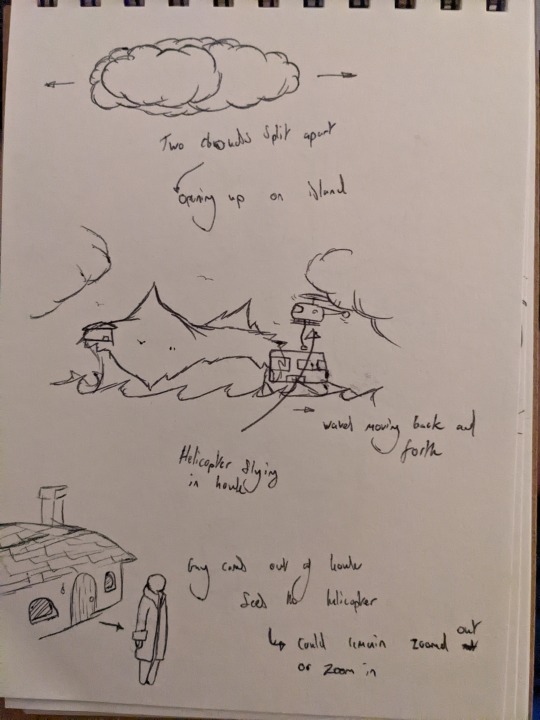 Two clouds split apart
opening up on island
waves moving back and
forth
Helicopter flying
in house
Guy comes out of house
Sees no helicopter
↳ could remain zoomed out
or zoom in